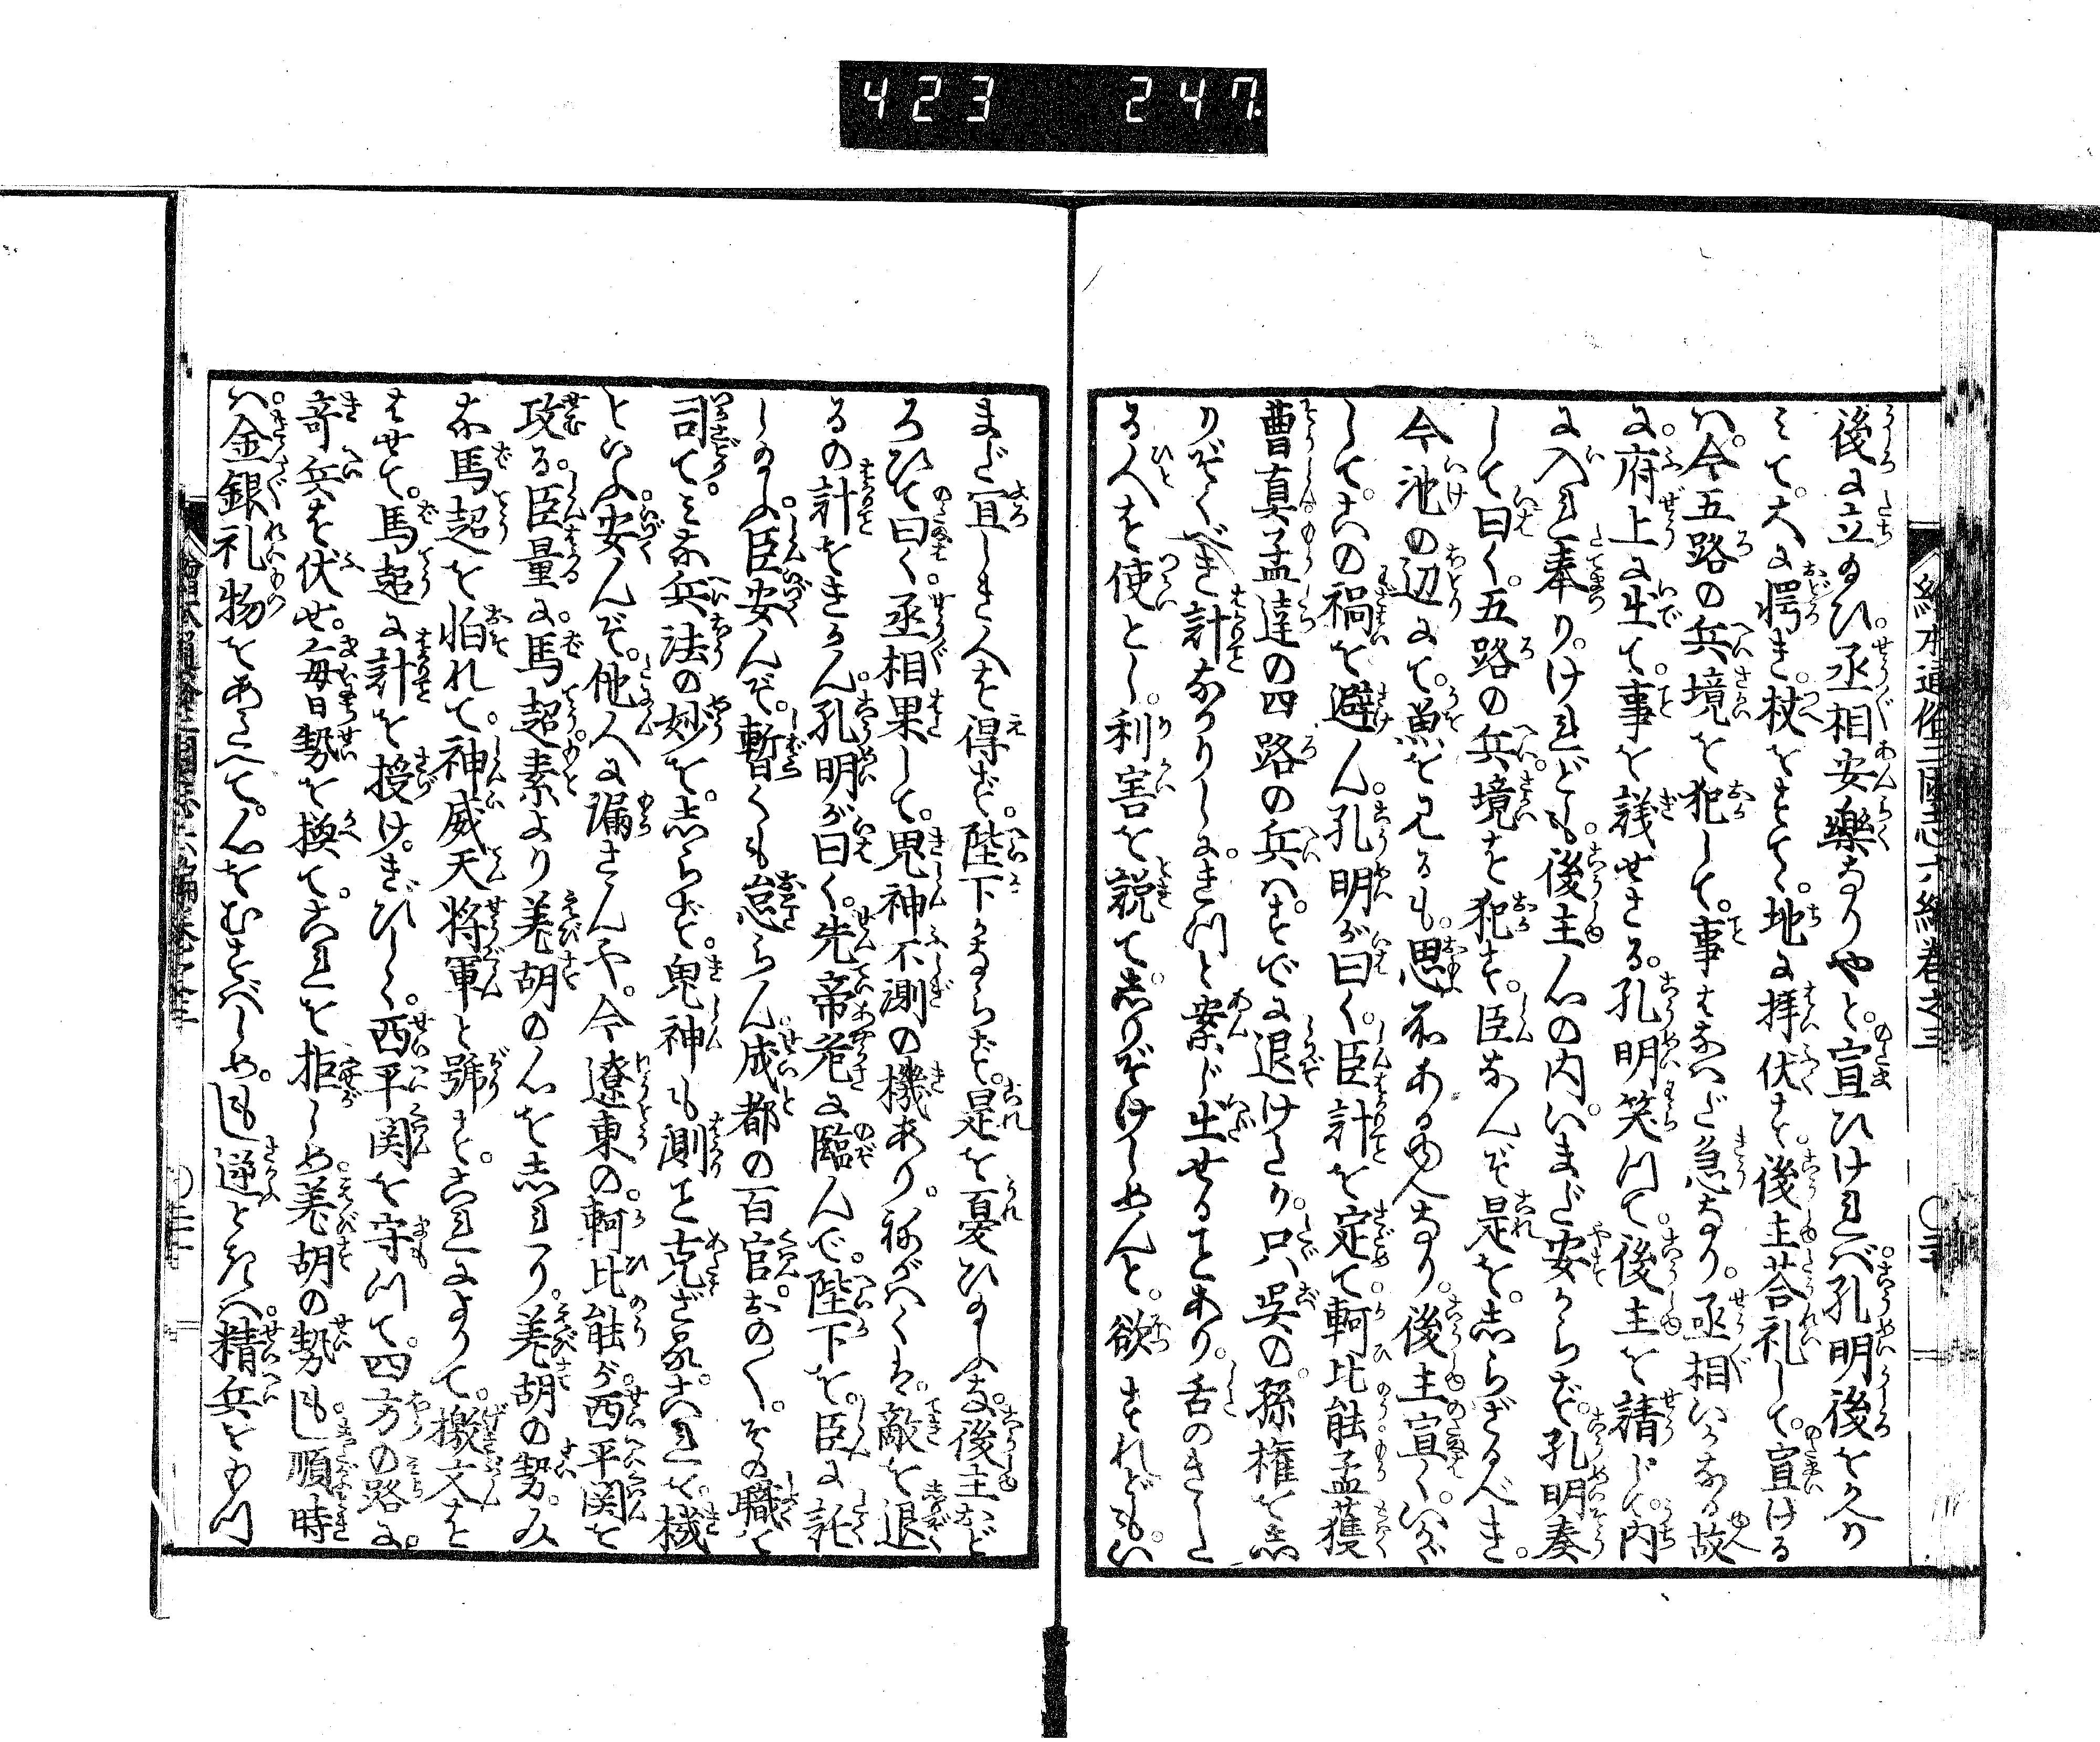 423 247.
絵本通俗三國志六編巻之三
後に立給ひ丞相安樂なりやと宣ひければ孔明後をかへり
みて大に愕き杖をすて地に拝伏す後主荅礼して宣ける
は今五路の兵境を犯して事すなはだ急なり丞相いかなる故
に府上に出て事を議せざる孔明笑つて後主を請じて内
に入れ奉りけれども後主心の内いまだ安からず孔明奏
して曰く五路の兵境を犯す臣なんぞ是をしらざるべき
今池の辺にて魚を見るも思ふ所あるゆへなり後主宣くいかゞ
してこの禍を避ん孔明が曰く臣計を定て軻比能孟獲
曹真孟達の四路の兵はすでに退けたり只呉の孫権をし
りぞくべき計なかりしにきつと案じ出せることあり舌のきゝた
る人を使とし利害を説てしりぞけしめんと欲すれどもい
まだ宜しき人を得ず陛下かならず是を憂ひ給ふな後主おど
ろひて曰く丞相果して鬼神不測の機あり祢がはくは敵を退
るの計をきかん孔明が曰く先帝危に臨んで陛下を臣に託
し給ふ臣安んぞ暫くも怠らん成都の百官おの〱その職を
司てみな兵法の妙をしらず鬼神も測こと克ざるこれを機
といふ安んぞ他人に漏さんや今遼東の軻比能が西平関を
攻る臣量に馬超素より羌胡の人を志れり羌胡の勢み
な馬超を怕れて神威天将軍と號すこれによりて檄文を
はせて馬超に計を授けきびしく西平関を守つて四方の路に
奇兵を伏せ毎日勢を換てこれを拒しめ羌胡の勢もし順時
は金銀礼物をあたへて心をむすばしめもし逆ときは精兵をもつ